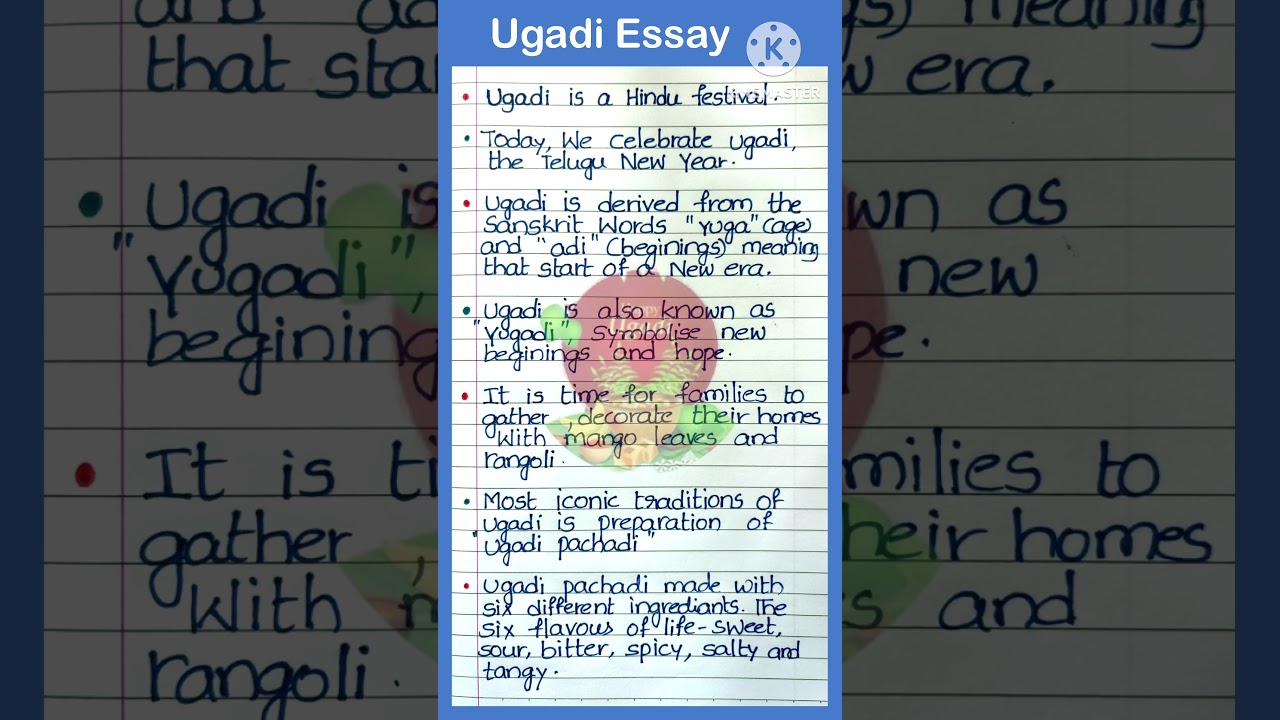 Ugadi Essay
K
KINEMASTER
• Ugadi is a Hindu festival.
• Today, We celebrate ugadi,
the Telugu New Year.
• Ugadi is derived from the
Sanskrit Words "Yuga" (age)
and "adi" (beginings) meaning
that start of a New era.
• Ugadi is also known as
"Yugadi", Symbolise new
beginings and hope.
• It is time for families to
gather, decorate their homes
With mango leaves and
rangoli.
• Most iconic traditions of
Ugadi is preparation of
"Ugadi pachadi"
• Ugadi pachadi made with
six different ingrediants. The
six flavous of life-sweet,
sour, bitter, spicy, salty and
tangy.
Happy
Ugadi
and
that sta
• Ugadi is
"Yugadi",
begining
• It is ti
gather,
With m
rangoli.
meaning
w era.
wn as
new
pe.
milies to
heir homes
s and